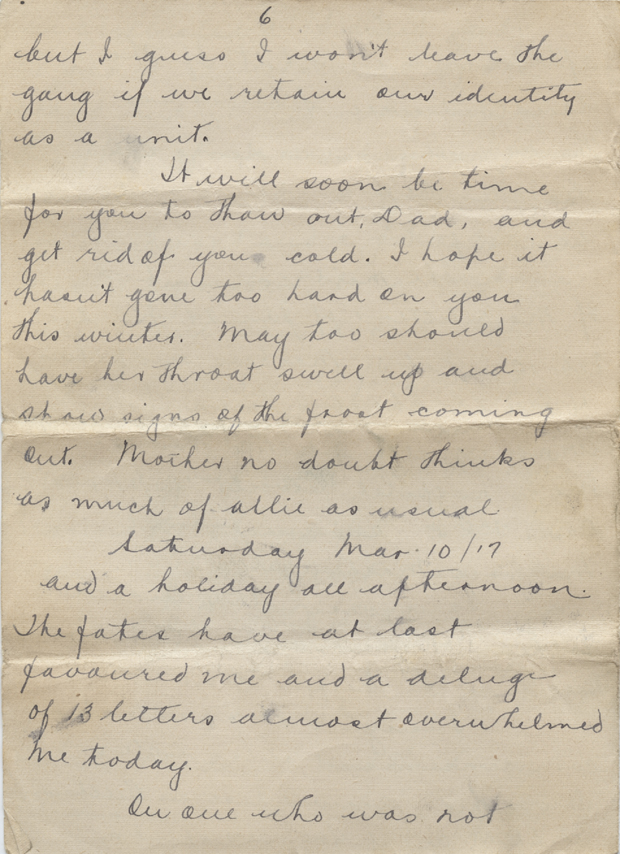 6
but I guess I won't leave the
gang if we retain our identity
as a unit.
It will soon be time
for you to thaw out, Dad, and
get rid of your cold. I hope it
hasn't gone too hard on you
this winter. May too should
have her throat swell up and
show signs of the frost coming
out. Mother no doubt thinks
as much of allie as usual
Saturday Mar. 10/17
and a holiday all afternoon.
The fates have at last
favoured me and a deluge
of 13 letters almost overwhelmed
me today.
one who was not